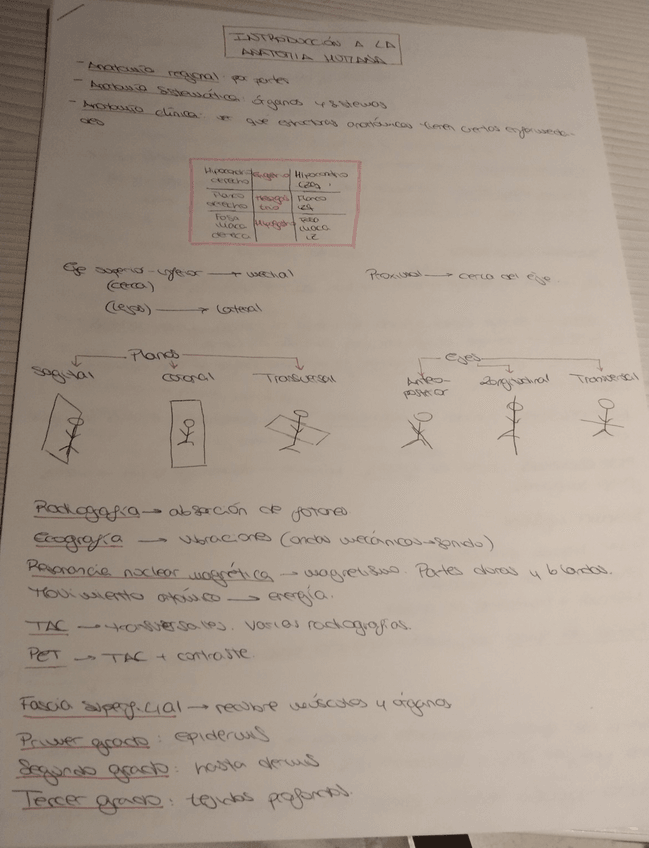 INTRODUCCIÓN A LA
ANATOMÍA HUMANA
- Anatomía regional: por partes
- Anatomía sistemática: órganos y sistemas
- Anatomía clínica: en que estructuras anatómicas tienen ciertas enfermeda-
des
Hipocondrio
derecho
Hipocondrio
izq.
Flanco
derecho
Mesogás
trico
Flanco
izq
Fosa
iliaca
derecha
Hipogástrio
Fosa
iliaca
iz
Eje superior-inferior → medial
(cerca)
(lejos) → lateral
Proximal → cerca del eje
Planos
Sagital
Coronal
Transversal
Ejes
Antero-
posterior
Longitudinal
Transversal
Radiografía → absorción de fotones
Ecografía → vibraciones (ondas mecánicas → sonido)
Resonancia nuclear magnética → magnetismo. Partes duras y blandas.
Movimiento atómico → energía.
TAC → transversales. varias radiografías.
PET → TAC + contraste.
Fascia superficial → recubre músculos y órganos
Primer grado: epidermis
Segundo grado: hasta dermis
Tercer grado: tejidos profundos.